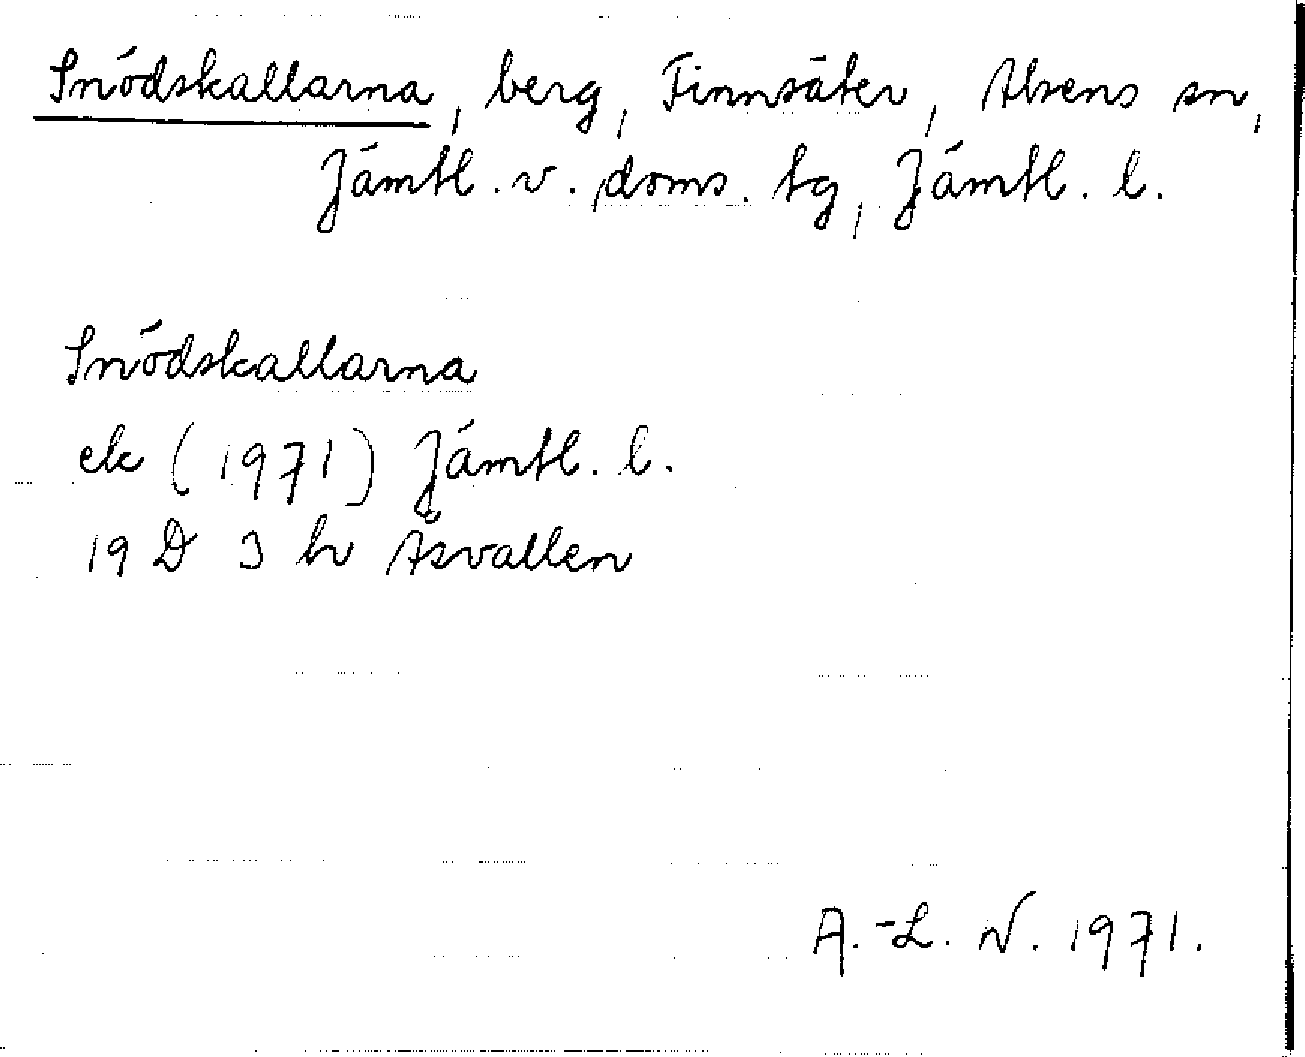 Snödskallarna, berg, Finnsäter, Alsens sn,
Jämtl. v. doms. tg, Jämtl. l.
Snödskallarna
ek (1971) Jämtl. l.
19 D 3 h Åsvallen
A.-L. N. 1971.